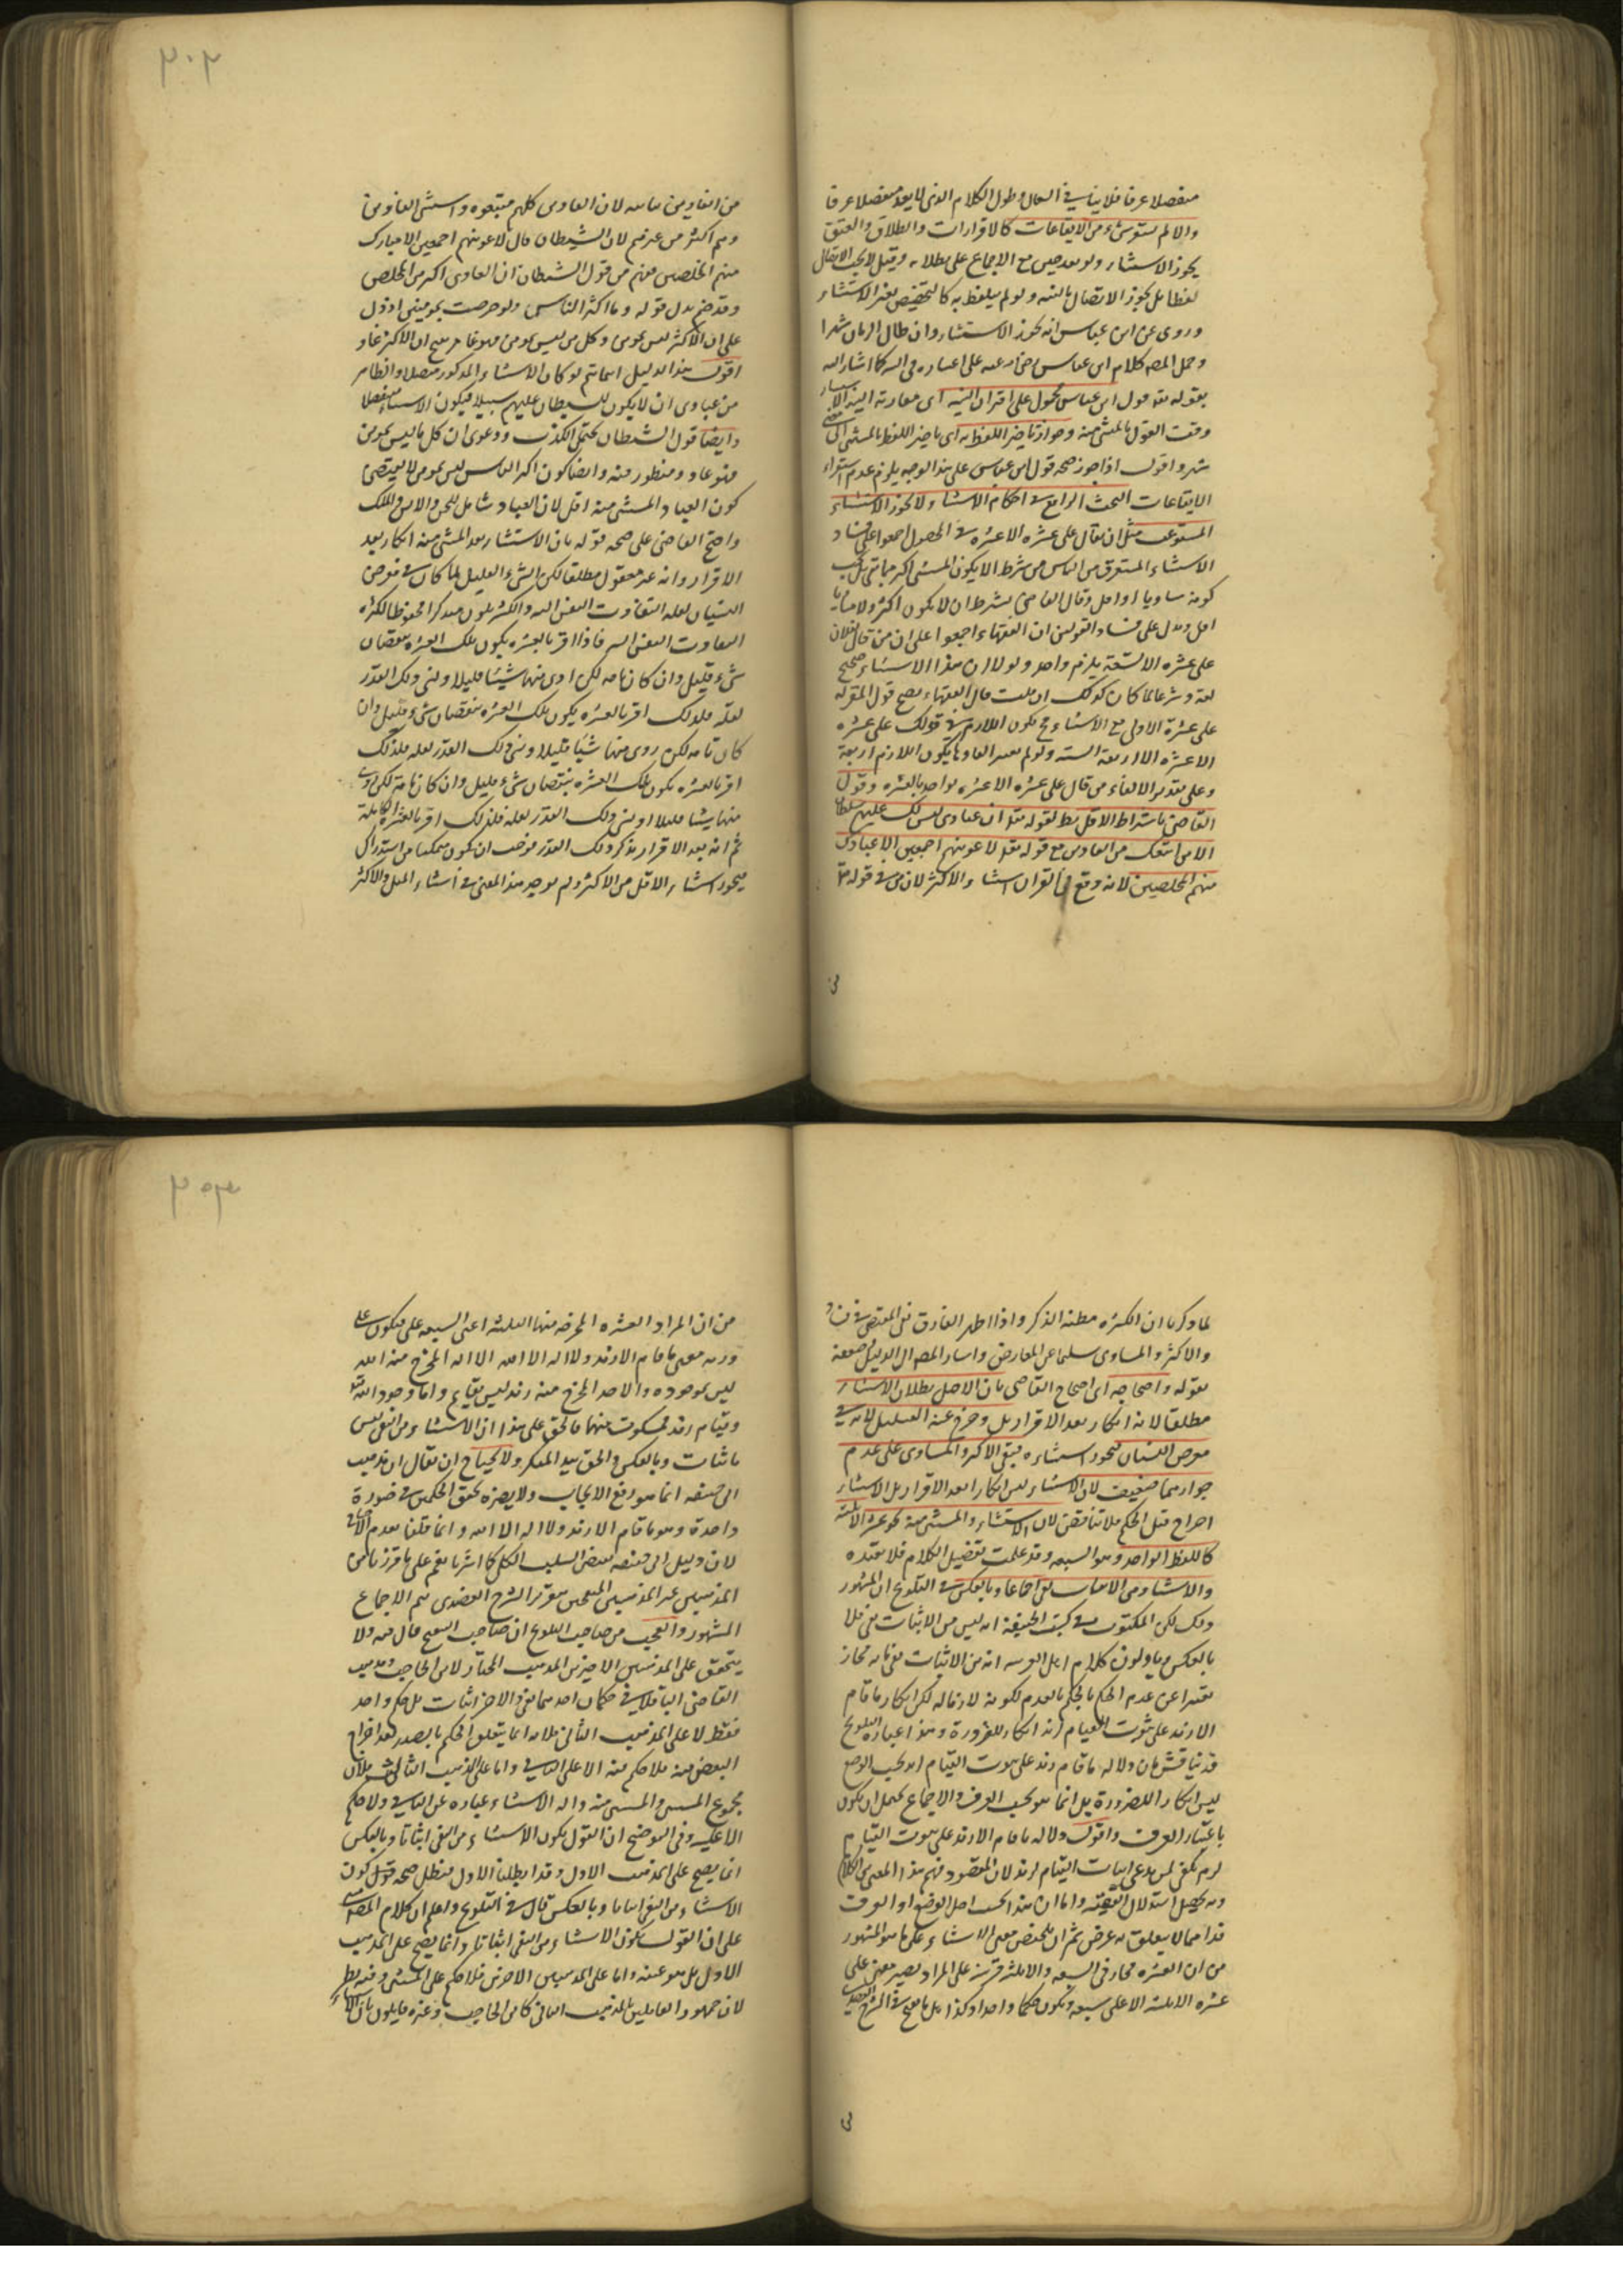 منفصلا عرفا فلا ينافيه السعال وطول الكلام الذى لا يعد منفصلا عرفا
والا لم يستو شىء من الايقاعات كالاقرارات والطلاق والعتق
يجوز الاستثناء ولو بعد حين مع الاجماع على بطلانه وقيل لا يجب الاتصال
لفظا بل يجوز الاتصال بالنية ولو لم يتلفظ به كالتخصيص بغير الاستثناء
وروى عن ابن عباس انه يجوز الاستثناء وان طال الزمان شهرا
وحمل المص كلام ابن عباس رضى الله عنه على اعتباره فى السر كما اشار اليه
بقوله قول ابن عباس محمول على اقتران النية اى مقارنة النية
وقت القول بالمستثنى منه وجواز تاخير اللفظ به اى تاخير اللفظ بالمستثنى الى
شهر واقول اذا جوز صحة قول ابن عباس على هذا الوجه يلزم عدم استقرار
الايقاعات البحث الرابع فى احكام الاستثناء ولا يجوز الاستثناء
المستوعب مثل ان يقال على عشرة الا عشرة فى المحصول اجمعوا على فساد
الاستثناء المستغرق من الناس من شرط الا يكون المستثنى اكثر مما بقى بل يجب
كونه مساويا او اقل وقال القاضى بشرط ان لا يكون اكثر ولا مساويا
اقل ويدل على فساد القولين ان الفقهاء اجمعوا على ان من قال لفلان
على عشرة الا تسعة يلزم واحد ولولا ان هذا الاستثناء صحيح
لغة وشرعا لما كان كذلك ان قلت قال الفقهاء يصح قول المقر له
على عشرة الاولى مع الاستثناء فح يكون اللازم فى قولك على عشرة
الا عشرة الا اربعة الستة ولو لم يعتبر العاد يكون اللازم اربعة
وعلى تقدير الالغاء من قال على عشرة الا عشرة يواخذ بالعشرة وقول
القاضى باشتراط الاقل بط لقوله تعا ان عبادى ليس لك عليهم سلطان
الا من اتبعك من الغاوين مع قوله تعا لاغوينهم اجمعين الا عبادك
منهم المخلصين لانه وقع فى القران استثناء والاكثر لان من فى قوله تعا
٣٠٢
من الغاوين بيانيه لان الغاوين كلهم متبعوه واستثنى الغاوين
وهم اكثر من غيرهم لان الشيطان قال لاغوينهم اجمعين الا عبادك
منهم المخلصين فعلم من قول الشيطان ان الغاوى اكثر من المخلص
وقد صح يدل قوله وما اكثر الناس ولو حرصت بمومنين اذ دل
على ان الاكثر ليس بمومن وكل من ليس بمومن فهو غاو ينتج ان الاكثر غاو
اقول هذا الدليل انما يتم لو كان الاستثناء المذكور متصلا والظاهر
من عبادى ان لا يكون للشيطان عليهم سبيلا فيكون الاستثناء منفصلا
وايضا قول الشيطان يحتمل الكذب ودعوى ان كل ما ليس بمومن
فهو غاو ومنظور فيه وايضا كون اكثر الناس ليس بمومن لا يقتضى
كون العباد المستثنى منه اقل لان العباد شامل للجن والانس والملك
واحتج القاضى على صحة قوله بان الاستثناء بعد المستثنى منه انكار بعد
الاقرار وانه غير معقول مطلقا لكن الشىء القليل لما كان فى معرض
النسيان لعلة التفاوت النفس اليه والكثير يكون متذكرا محفوظا لكثرة
التفاوت النفس اليه فاذا اقر بالعشرة يكون تلك العشرة بنقصان
شىء قليل وان كان تامة لكن ادى منها شيئا قليلا ونسى ذلك القدر
لقلته فلذلك اقر بالعشرة يكون تلك العشرة بنقصان شىء قليل وان
كان تامة لكن روى منها شيئا قليلا ونسى ذلك القدر لعله فلذلك
اقر بالعشرة يكون تلك العشرة بنقصان شىء قليل وان كان تامة لكن روى
منها شيئا قليلا او نسى ذلك القدر لعله فلذلك اقر بالعشرة الكاملة
ثم انه بعد الاقرار يذكر ذلك القدر فوجب ان يكون متمكنا من استدراك
فيجوز استثناء الاقل من الاكثر ولم يوجد هذا المعنى فى استثناء المثل والاكثر
لما ذكرنا ان الكثرة مظنة الذكر واذا ظهر الفارق بقى المقتضى فى فساد
والاكثر والمساوى سليما عن المعارض واشار المص الى الدليل ضعفه
بقوله واحتجاجه اى احتجاج القاضى بان الاصل بطلان الاستثناء
مطلقا لانه انكار بعد الاقرار بل وخرج عنه القليل لانه فى
معرض النسيان فيجوز استثناءه فبقى الاكثر والمساوى على عدم
جوازهما ضعيف لان الاستثناء ليس انكارا بعد الاقرار بل الاستثناء
اخراج قبل الحكم فلا تناقض لان الاستثناء والمستثنى منه كعشرة الا ثلثة
كاللفظ الواحد وهو السبعة وقد علمت تفصيل الكلام فلا نعيده
والاستثناء من الاثبات نفى اجماعا وبالعكس فى التلويح ان المشهور
ذلك لكن المكتوب فى كتب الحنفية انه ليس من الاثبات نفى فلا
بالعكس وياولون كلام اهل العربية انه من الاثبات نفى بانه مجاز
تعبيرا عن عدم الحكم بالحكم بالعدم لكونه لازما له لكن انكار ما قام
الا زيد على ثبوت القيام لزيد انكار للضرورة وهذا عبارة التلويح
قد يناقش بان دلاله ما قام زيد على ثبوت القيام ان بحسب الوضع
ليس انكارا للضرورة بل انما هو بحسب العرف والاجماع يحتمل ان يكون
باعتبار العرف واقول دلاله ما قام الا زيد على ثبوت القيام
لزيد يكفى لمن يدعى اثبات القيام لزيد لان المقصود فهم هذا المعنى من الكلام
وبه يحصل استدلال واما ان هذا بحسب اصل الوضع او العرف
فذا مما لا يتعلق به غرض ثم ان تلخيص معنى الاستثناء على ما هو المشهور
من ان العشرة مجاز فى السبعة والا ثلثة قرينة على المراد يصير معنى على
عشرة الا ثلثة الا على سبعة ويكون حكما واحدا وكذا على ما صح فى الشرح العضدى
٣٠٣
من ان المراد العشرة المخرجة منها الثلثة اعنى السبعة على فيكون
وزيد معنى ما قام الا زيد ولا اله الا الله الا اله المخرج منه الله
ليس بموجود والاحد المخرج منه زيد ليس بقايم واما وجود الله تعا
وقيام زيد فمسكوت عنهما فالحق على هذا ان الاستثناء من النفى ليس
باثبات وبالعكس والحق بيد المنكر ولا يحتاج ان يقال ان مذهب
ابى حنيفه انما هو رفع الايجاب ولا يضره تحقق الحكمين فى صورة
واحدة وهو ما قام الا زيد ولا اله الا الله وانما قلنا بعدم الاحتياج
لان دليل ابى حنيفه بعض السلب الكلى كما اشرنا نعم على ما قرر ناس
المذهبين غير المذهبين المتمحين بتقرير الشرح العضدى يتم الاجماع
المشهور والعجب من صاحب التلويح ان صاحب التنقيح قال فيه ولا
يتحقق على المذهبين الاخيرين المذهب المختار لابن الحاجب ومذهب
القاضى الباقلانى حكمان احدهما نفى والاخر اثبات بل حكم واحد
فقط لا على المذهب الثانى فلانه انما يتعلق الحكم بالصدر بعد اخراج
البعض منه فلا حكم فيه الا على الباقى واما على المذهب الثالث فلان
مجموع المستثنى والمستثنى منه والة الاستثناء عبارة عن الباقى ولا حكم
الا عليه وفى التوضيح ان القول بكون الاستثناء من النفى اثباتا وبالعكس
انما يصح على المذهب الاول وقد ابطلنا الاول فبطل صحة قول كون
الاستثناء من النفى اثباتا وبالعكس قال فى التلويح واعلم ان كلام المص
على ان القول بكون الاستثناء من النفى اثباتا وانما يصح على المذهب
الاول بل هو عينه واما على المذهبين الاخرين فلا حكم على المستثنى وفيه نظر
لان جمهور القايلين بالمذهب الثانى كابن الحاجب وغيره قايلون بان الاستثناء